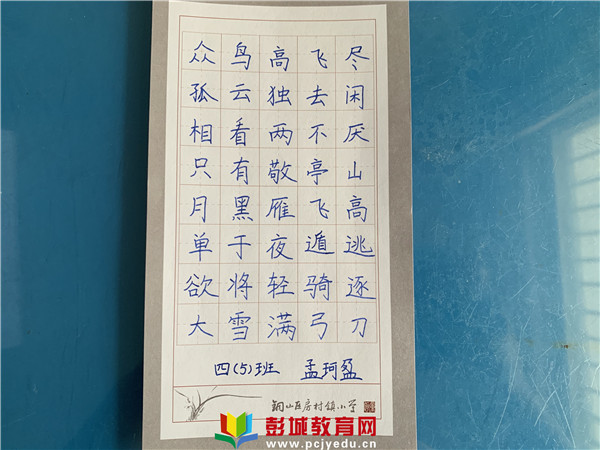 众鸟高飞尽
孤云独去闲
相看两不厌
只有敬亭山
月黑雁飞高
单于夜遁逃
欲将轻骑逐
大雪满弓刀
四(5)班 孟珂盈
铜山区房村镇小学
彭城教育网
www.pcjyedu.cn